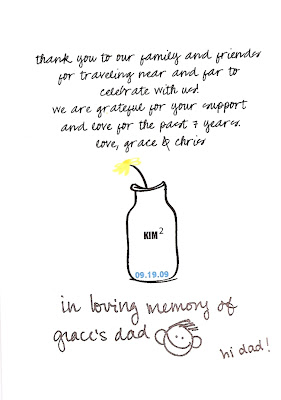 thank you to our family and friends
for traveling near and far to
celebrate with us!
we are grateful for your support
and love for the past 7 years.
love, grace & chris
KIM²
09.19.09
in loving memory of
grace's dad
hi dad!